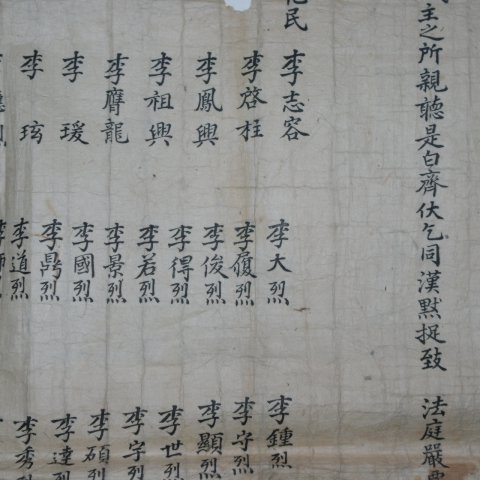 主之所親聽是白齊伏乞同漢黙捉致 法庭嚴
民 李志容 李大烈 李鍾烈
李啓柱 李履烈 李守烈
李鳳興 李俊烈 李顯烈
李祖興 李得烈 李世烈
李膺龍 李若烈 李字烈
李瑗 李景烈 李碩烈
李玹 李國烈 李達烈
李 烈 李秀
李道烈